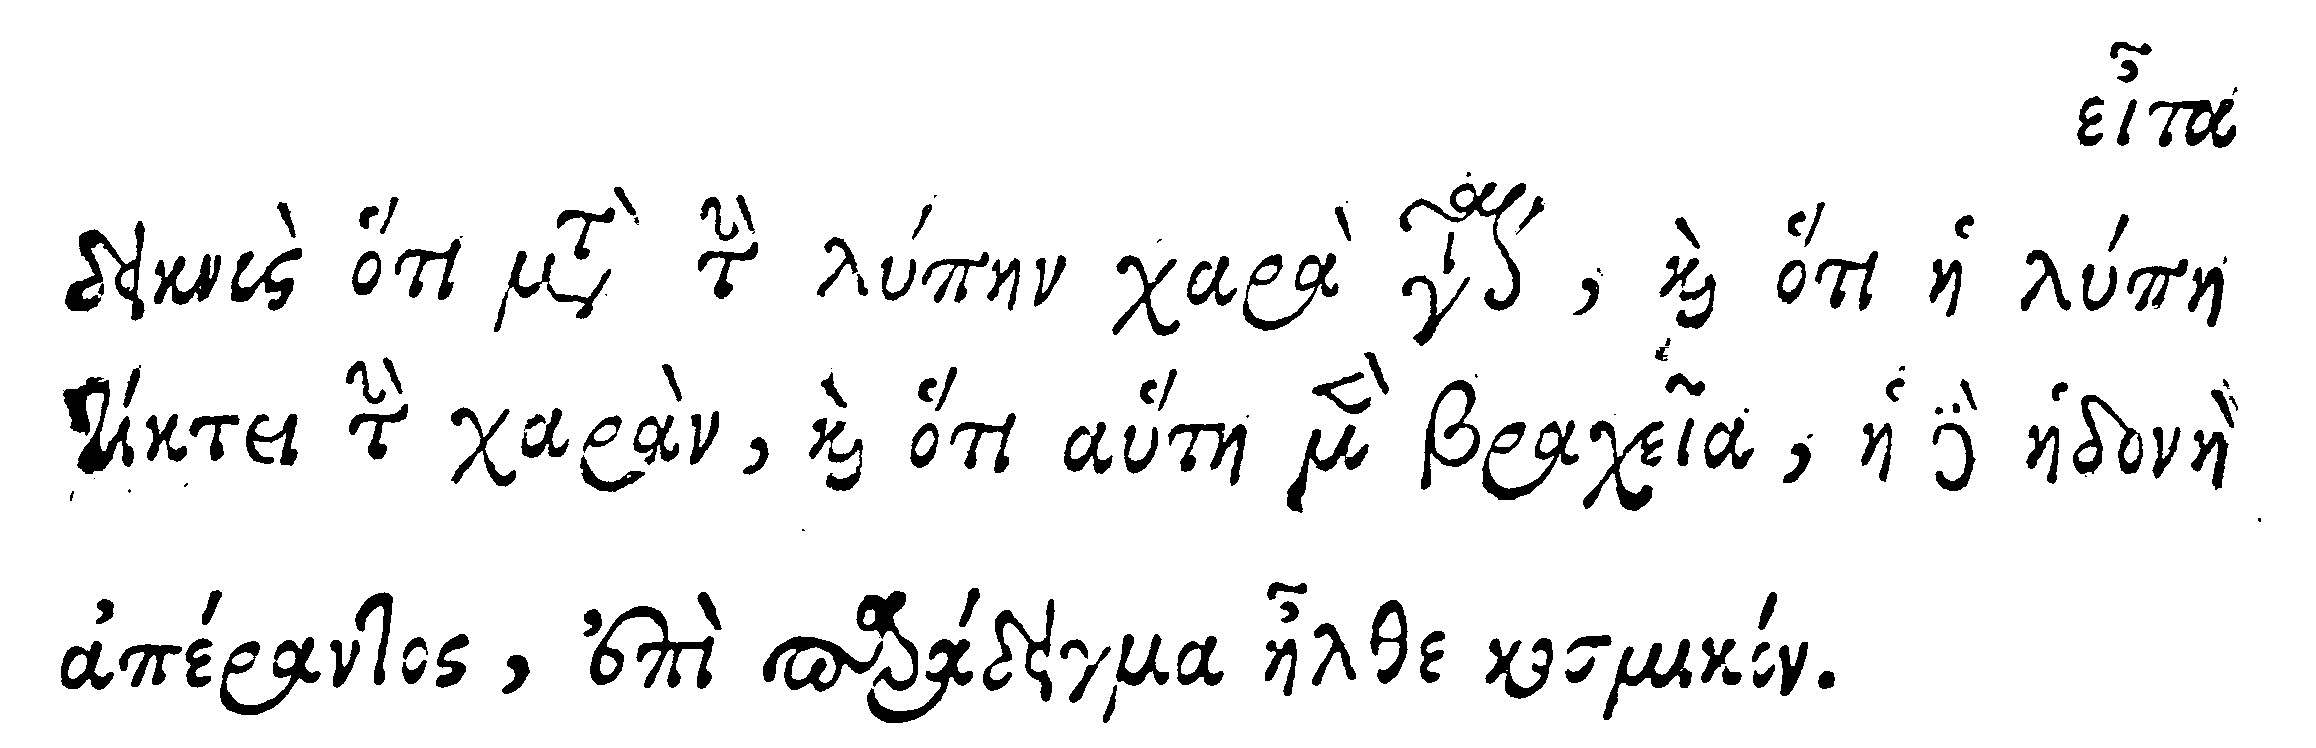 εἶτα
δεικνὺς ὅτι μετὰ τὴν λύπην χαρὰ γίνεται, καὶ ὅτι ἡ λύπη
τίκτει τὴν χαρὰν, καὶ ὅτι αὕτη μὲν βραχεῖα, ἡ δὲ ἡδονὴ
ἀπέραντος, ἐπὶ παράδειγμα ἦλθε κοσμικόν.